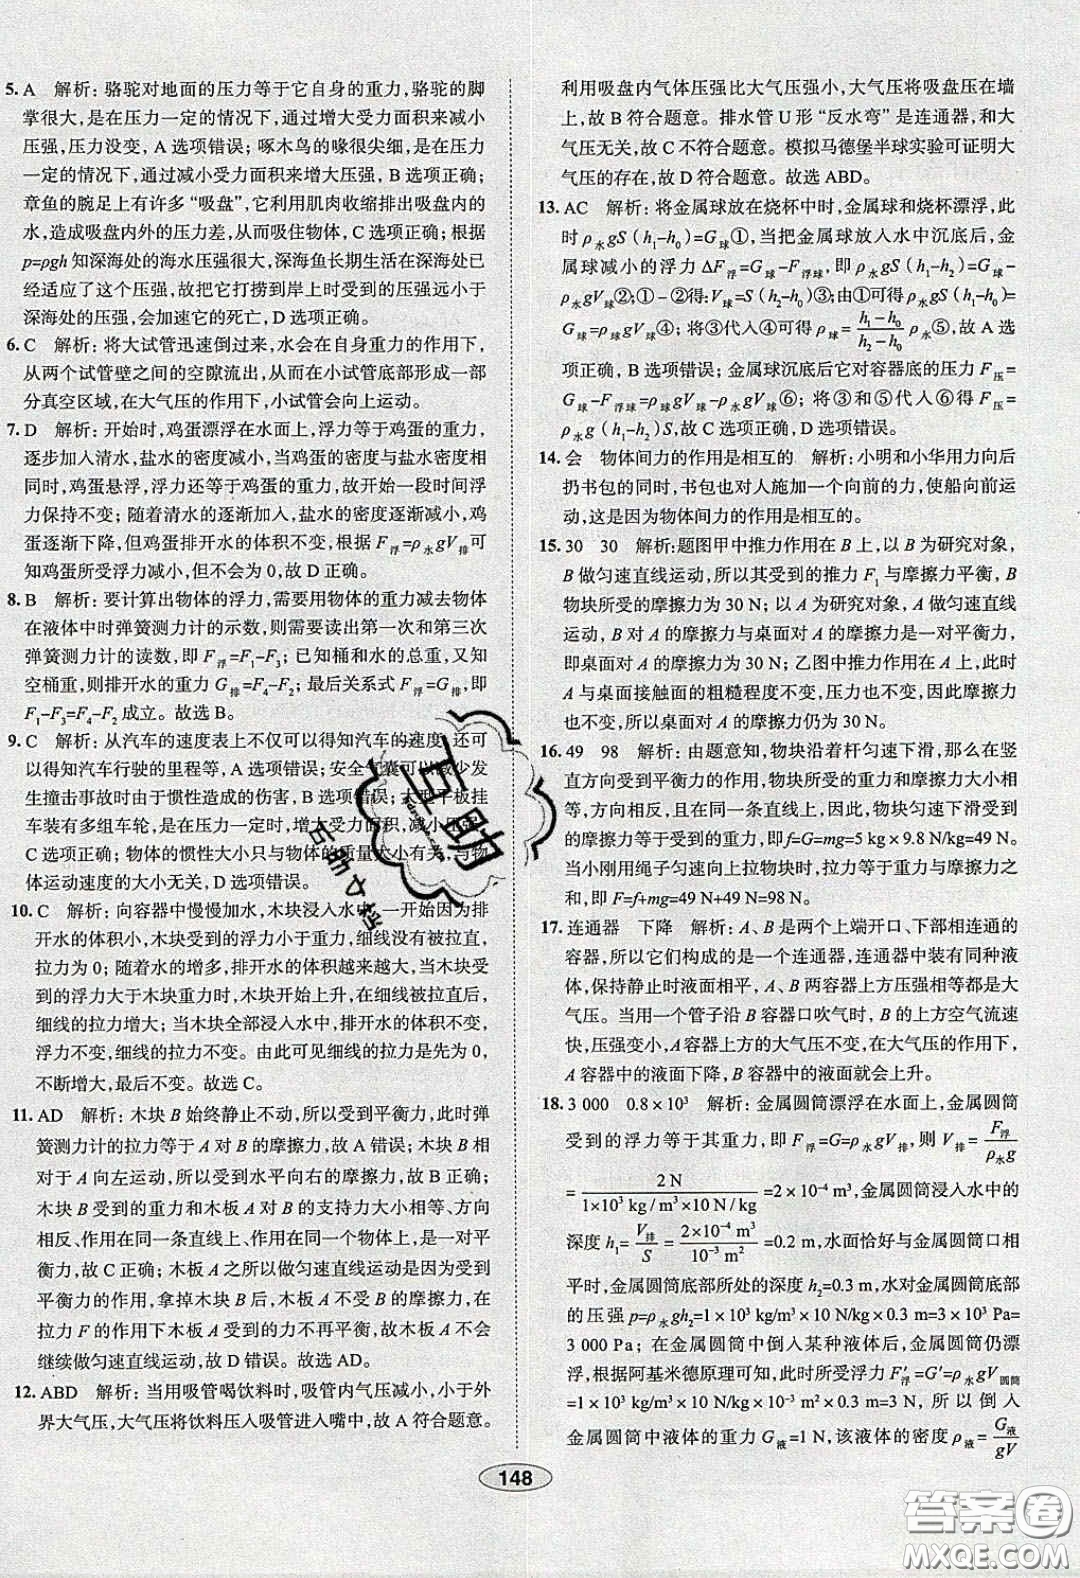 5. A　解析:骆驼对地面的压力等于它自身的重力,骆驼的脚
掌很大,是在压力一定的情况下,通过增大受力面积来减小
压强,压力没变, A 选项错误;啄木鸟的喙很尖细,是在压力
一定的情况下,通过减小受力面积来增大压强,B 选项正确;
章鱼的腕足上有许多“吸盘”,它利用肌肉收缩排出吸盘内的
水,造成吸盘内外的压力差,从而吸住物体,C 选项正确;根据
p=ρgh 知深海处的海水压强很大,深海鱼长期生活在深海处已
经适应了这个压强,故把它打捞到岸上时受到的压强远小于
深海处的压强,会加速它的死亡,D 选项正确。
6. C　解析:将大试管迅速倒过来,水会在自身重力的作用下,
从两个试管壁之间的空隙流出,从而在小试管底部形成一部
分真空区域,在大气压的作用下,小试管会向上运动。
7. D　解析:开始时,鸡蛋漂浮在水面上,浮力等于鸡蛋的重力,
逐步加入清水,盐水的密度减小,当鸡蛋的密度与盐水密度相
同时,鸡蛋悬浮,浮力还等于鸡蛋的重力,故开始一段时间浮
力保持不变;随着清水的逐渐加入,盐水的密度逐渐减小,鸡
蛋逐渐下降,但鸡蛋排开水的体积不变,根据 F浮=ρ水gV排可
知鸡蛋所受浮力减小,但不会为 0,故 D 正确。
8. B　解析:要计算出物体的浮力,需要用物体的重力减去物体
在液体中时弹簧测力计的示数,则需要读出第一次和第三次
弹簧测力计的读数,即 F浮=F1-F3;已知桶和水的总重,又知
空桶重,则排开水的重力 G排=F4-F2;最后关系式 F浮=G排,即
F1-F3=F4-F2成立。故选 B。
9. C　解析:从汽车的速度表上不仅可以得知汽车的速度,还可
以得知汽车行驶的里程等,A 选项错误;安全气囊可以减少发
生撞击事故时由于惯性造成的伤害,B 选项错误;大型平板挂
车装有多组车轮,是在压力一定时,增大受力面积,减小压强,
C 选项正确;物体的惯性大小只与物体的质量大小有关,与物
体运动速度的大小无关,D 选项错误。
10. C　解析:向容器中慢慢加水,木块浸入水中,一开始因为排
开水的体积小,木块受到的浮力小于重力,细线没有被拉直,
拉力为 0;随着水的增多,排开水的体积越来越大,受到水
的浮力大于木块重力时,木块开始上升,在细线被拉直后,
细线的拉力增大;当木块全部浸入水中,排开水的体积不变,
浮力不变,细线的拉力不变。由此可见细线的拉力先为 0,
不断增大,最后不变。故选 C。
11. AD　解析:木块 B 始终静止不动,所以受到平衡力,此时弹
簧测力计的拉力等于 A 对 B 的摩擦力,故 A 错误;木块 B 相
对于 A 向左运动,所以受到水平向右的摩擦力,故 B 正确;
木块 B 受到的重力和木板 A 的支持力大小相等、方向
相反、作用在同一条直线上、作用在同一个物体上,是一对平
衡力,故 C 正确;木板 A 之所以做匀速直线运动是因为受到
平衡力的作用,拿掉木块 B 后,木板 A 不受 B 的摩擦力,在
拉力 F 的作用下木板 A 受到的力不再平衡,故木板 A 不会
继续做匀速直线运动,故 D 错误。故选 AD。
12. ABD　解析:当用吸管喝饮料时,吸管内气压减小,小于外
界大气压,大气压将饮料压入吸管进入嘴中,故 A 符合题意。
利用吸盘内气体压强比大气压强小,大气压将吸盘压在墙
上,故 B 符合题意。排水管 U 形“反水弯”是连通器,和大
气压无关,故 C 不符合题意。模拟马德堡半球实验可证明大
气压的存在,故 D 符合题意。故选 ABD。
13. AC　解析:将金属球放在烧杯中时,金属球和烧杯漂浮,此
时 ρ水gS(h1-h0)=G球①,当把金属球放入水中沉底后,金
属球减小的浮力 ΔF浮=G球-F浮球,即 ρ水gS(h1-h2)=G球-
ρ水gV球②;①-②得:V球=S(h2-h0)③;由①可得 ρ水gS(h1-h0)=
G球=ρ球gV球④;将③代入④可得 ρ球=(h1-h0)/(h2-h0) ρ水⑤,故 A 选
项正确,B 选项错误;金属球沉底后它对容器底的压力 F压=
G球-F浮球=ρ球gV球-ρ水gV球⑥;将③和⑤代入⑥得 F压=
ρ水g(h1-h2)S,故 C 选项正确,D 选项错误。
14. 会　物体间力的作用是相互的　解析:小明和小华用力向后
扔书包的同时,书包也对人施加一个向前的力,使船向前运
动,这是因为物体间力的作用是相互的。
15. 30　30　解析:题图甲中推力作用在 B 上,以 B 为研究对象,
B 做匀速直线运动,所以其受到的推力 F1 与摩擦力平衡, B
物块所受的摩擦力为 30 N;以 A 为研究对象,A 做匀速直线
运动,B 对 A 的摩擦力与桌面对 A 的摩擦力是一对平衡力,
即桌面对 A 的摩擦力为 30 N;乙图中推力作用在 A 上,此时
A 与桌面接触面的粗糙程度不变,压力也不变,因此摩擦力
不变,所以桌面对 A 的摩擦力仍为 30 N。
16. 49　98　解析:由题意知,物块沿着杆匀速下滑,那么在竖
直方向受到平衡力的作用,物块所受的重力和摩擦力大小相
等,方向相反,且在同一条直线上,因此,物块匀速下滑受到
的摩擦力等于受到的重力,即f=G=mg=5 kg×9.8 N/kg=49 N。
当小刚用绳子匀速向上拉物块时,拉力等于重力与摩擦力之
和,即 F=f+mg=49 N+49 N=98 N。
17. 连通器　下降　解析:A、B是两个上端开口、下部相连通的
容器,所以它们构成的是一个连通器,连通器中装有同种液
体,保持静止时液面相平,A、B 两容器上方压强相等都是大
气压。当用一个管子沿 B 容器口吹气时,B 的上方空气流速
快,压强变小,A 容器上方的大气压不变,在大气压的作用下,
A 容器中的液面下降,B 容器中的液面就会上升。
18. 3 000　0.8×10³　解析:金属圆筒漂浮在水面上,金属圆筒
受到的浮力等于其重力,即 F浮=G=ρ水gV排,则 V排=F浮/(ρ水g)
=2 N/(1×10³ kg/m³×10 N/kg)=2×10⁻⁴ m³,金属圆筒浸入水中的
深度 h1=V排/S=(2×10⁻⁴ m³)/(10⁻³ m²)=0.2 m,水面恰好与金属圆筒口相
平时,金属圆筒底部所处的深度 h2=0.3 m,水对金属圆筒底部
的压强 p=ρ水gh2=1×10³ kg/m³×10 N/kg×0.3 m=3×10³ Pa=
3 000 Pa;在金属圆筒中倒入某种液体后,金属圆筒仍漂
浮,根据阿基米德原理可知,此时所受浮力 F′浮=G′=ρ水gV圆筒
=1×10³ kg/m³×10 N/kg×10⁻³ m²×0.3 m=3 N,所以倒入
金属圆筒中液体的重力 G液=1 N,该液体的密度 ρ液=G液/(gV)
148
互助
答案圈
MXQE.COM